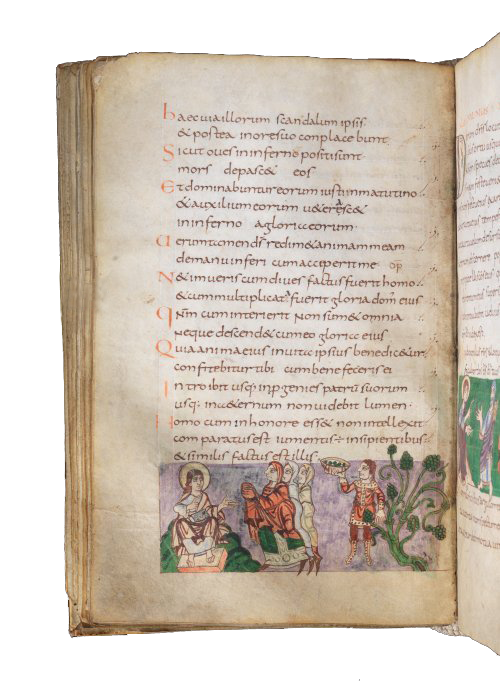 haec uia illorum scandalum ipsis
& postea in ore suo conplacebunt
Sicut oues in inferno positi sunt
mors depasc& eos
Et dominabuntur eorum iusti in matutino
& auxilium eorum u&erasc&
in inferno a gloria eorum
Uerumtamen d̅s redim& animam meam
de manu inferi cum acceperit me
Ne timueris cum diues factus fuerit homo
& cum multiplicata fuerit gloria dom̅ eius
Qn̅m cum interierit non sum& omnia
neque descend& cum eo gloria eius
Quia anima eius in uita ipsius benedic&ur
confitebitur tibi cum benefeceris ei
Introibit usq; in progenies patrū suorum
usq; in a&ernum non uidebit lumen
Homo cum in honore ess& non intellexit
comparatus est iumentis insipientibus
& similis factus est illis